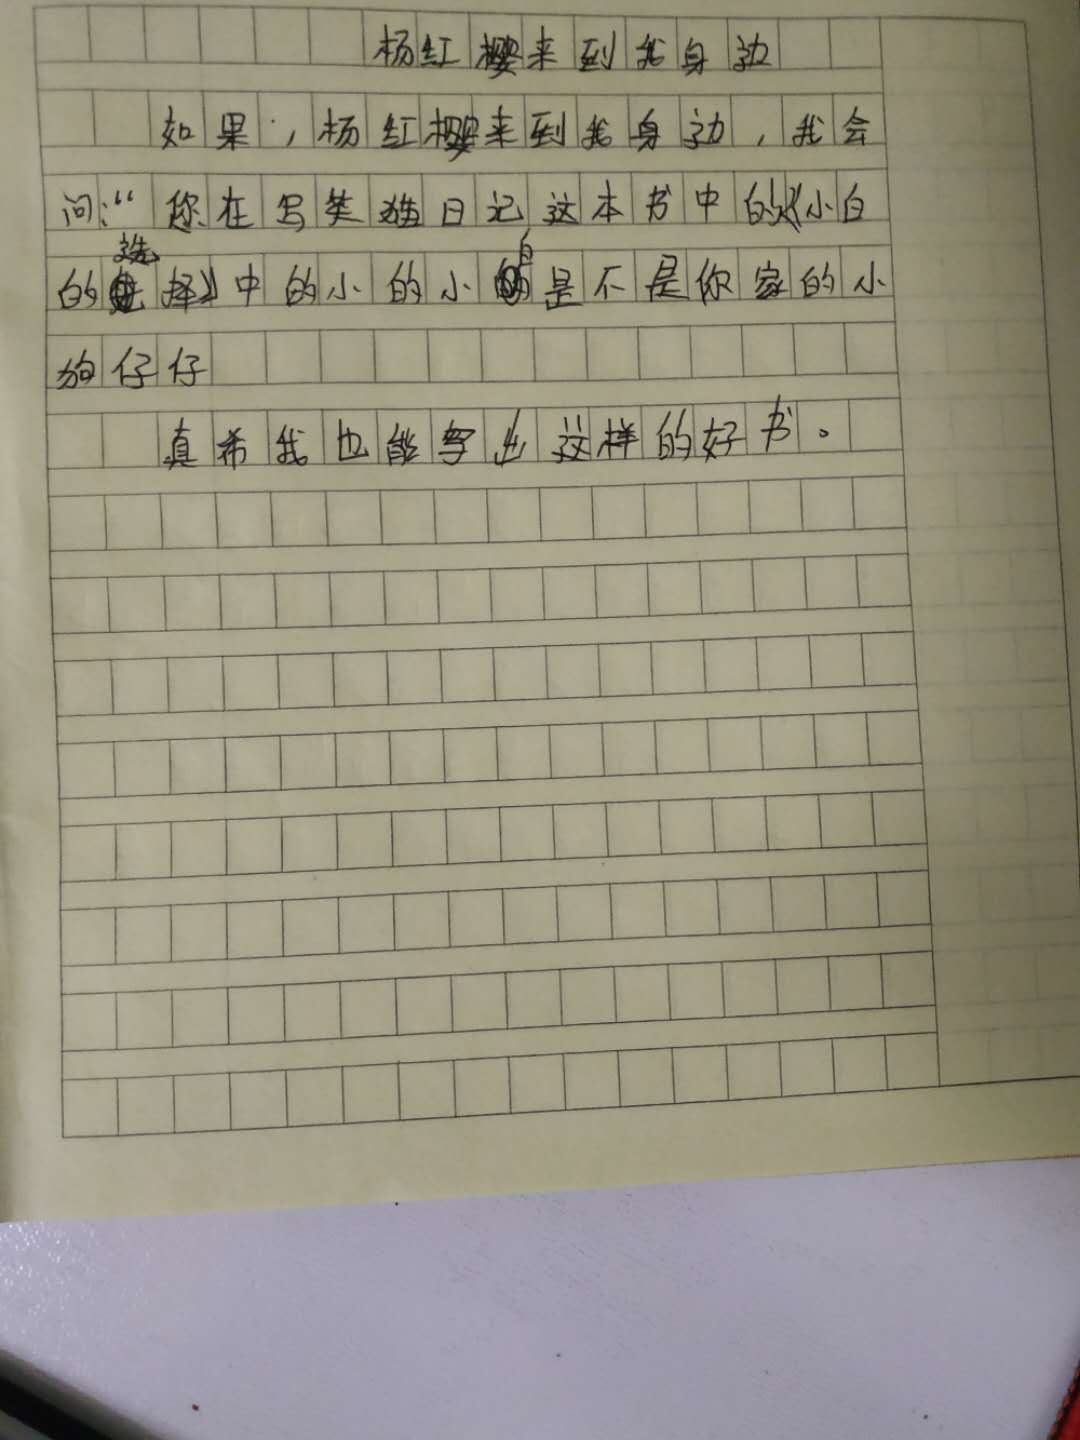 杨红樱来到我身边
如果,杨红樱来到我身边,我会
问:“你在写笑猫日记这本书中的《小白
的选择》中的小的小白是不是你家的小
狗仔仔
真希我也能写出这样的好书。